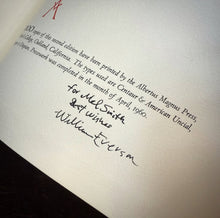 A
00 copies of the second edition have been printed by the Albertus Magnus Press,
College, Oakland, California. The types used are Centaur & American Uncial,
Presswork was completed in the month of April, 1960.
for Mel Smith
Best Wishes
William Everson